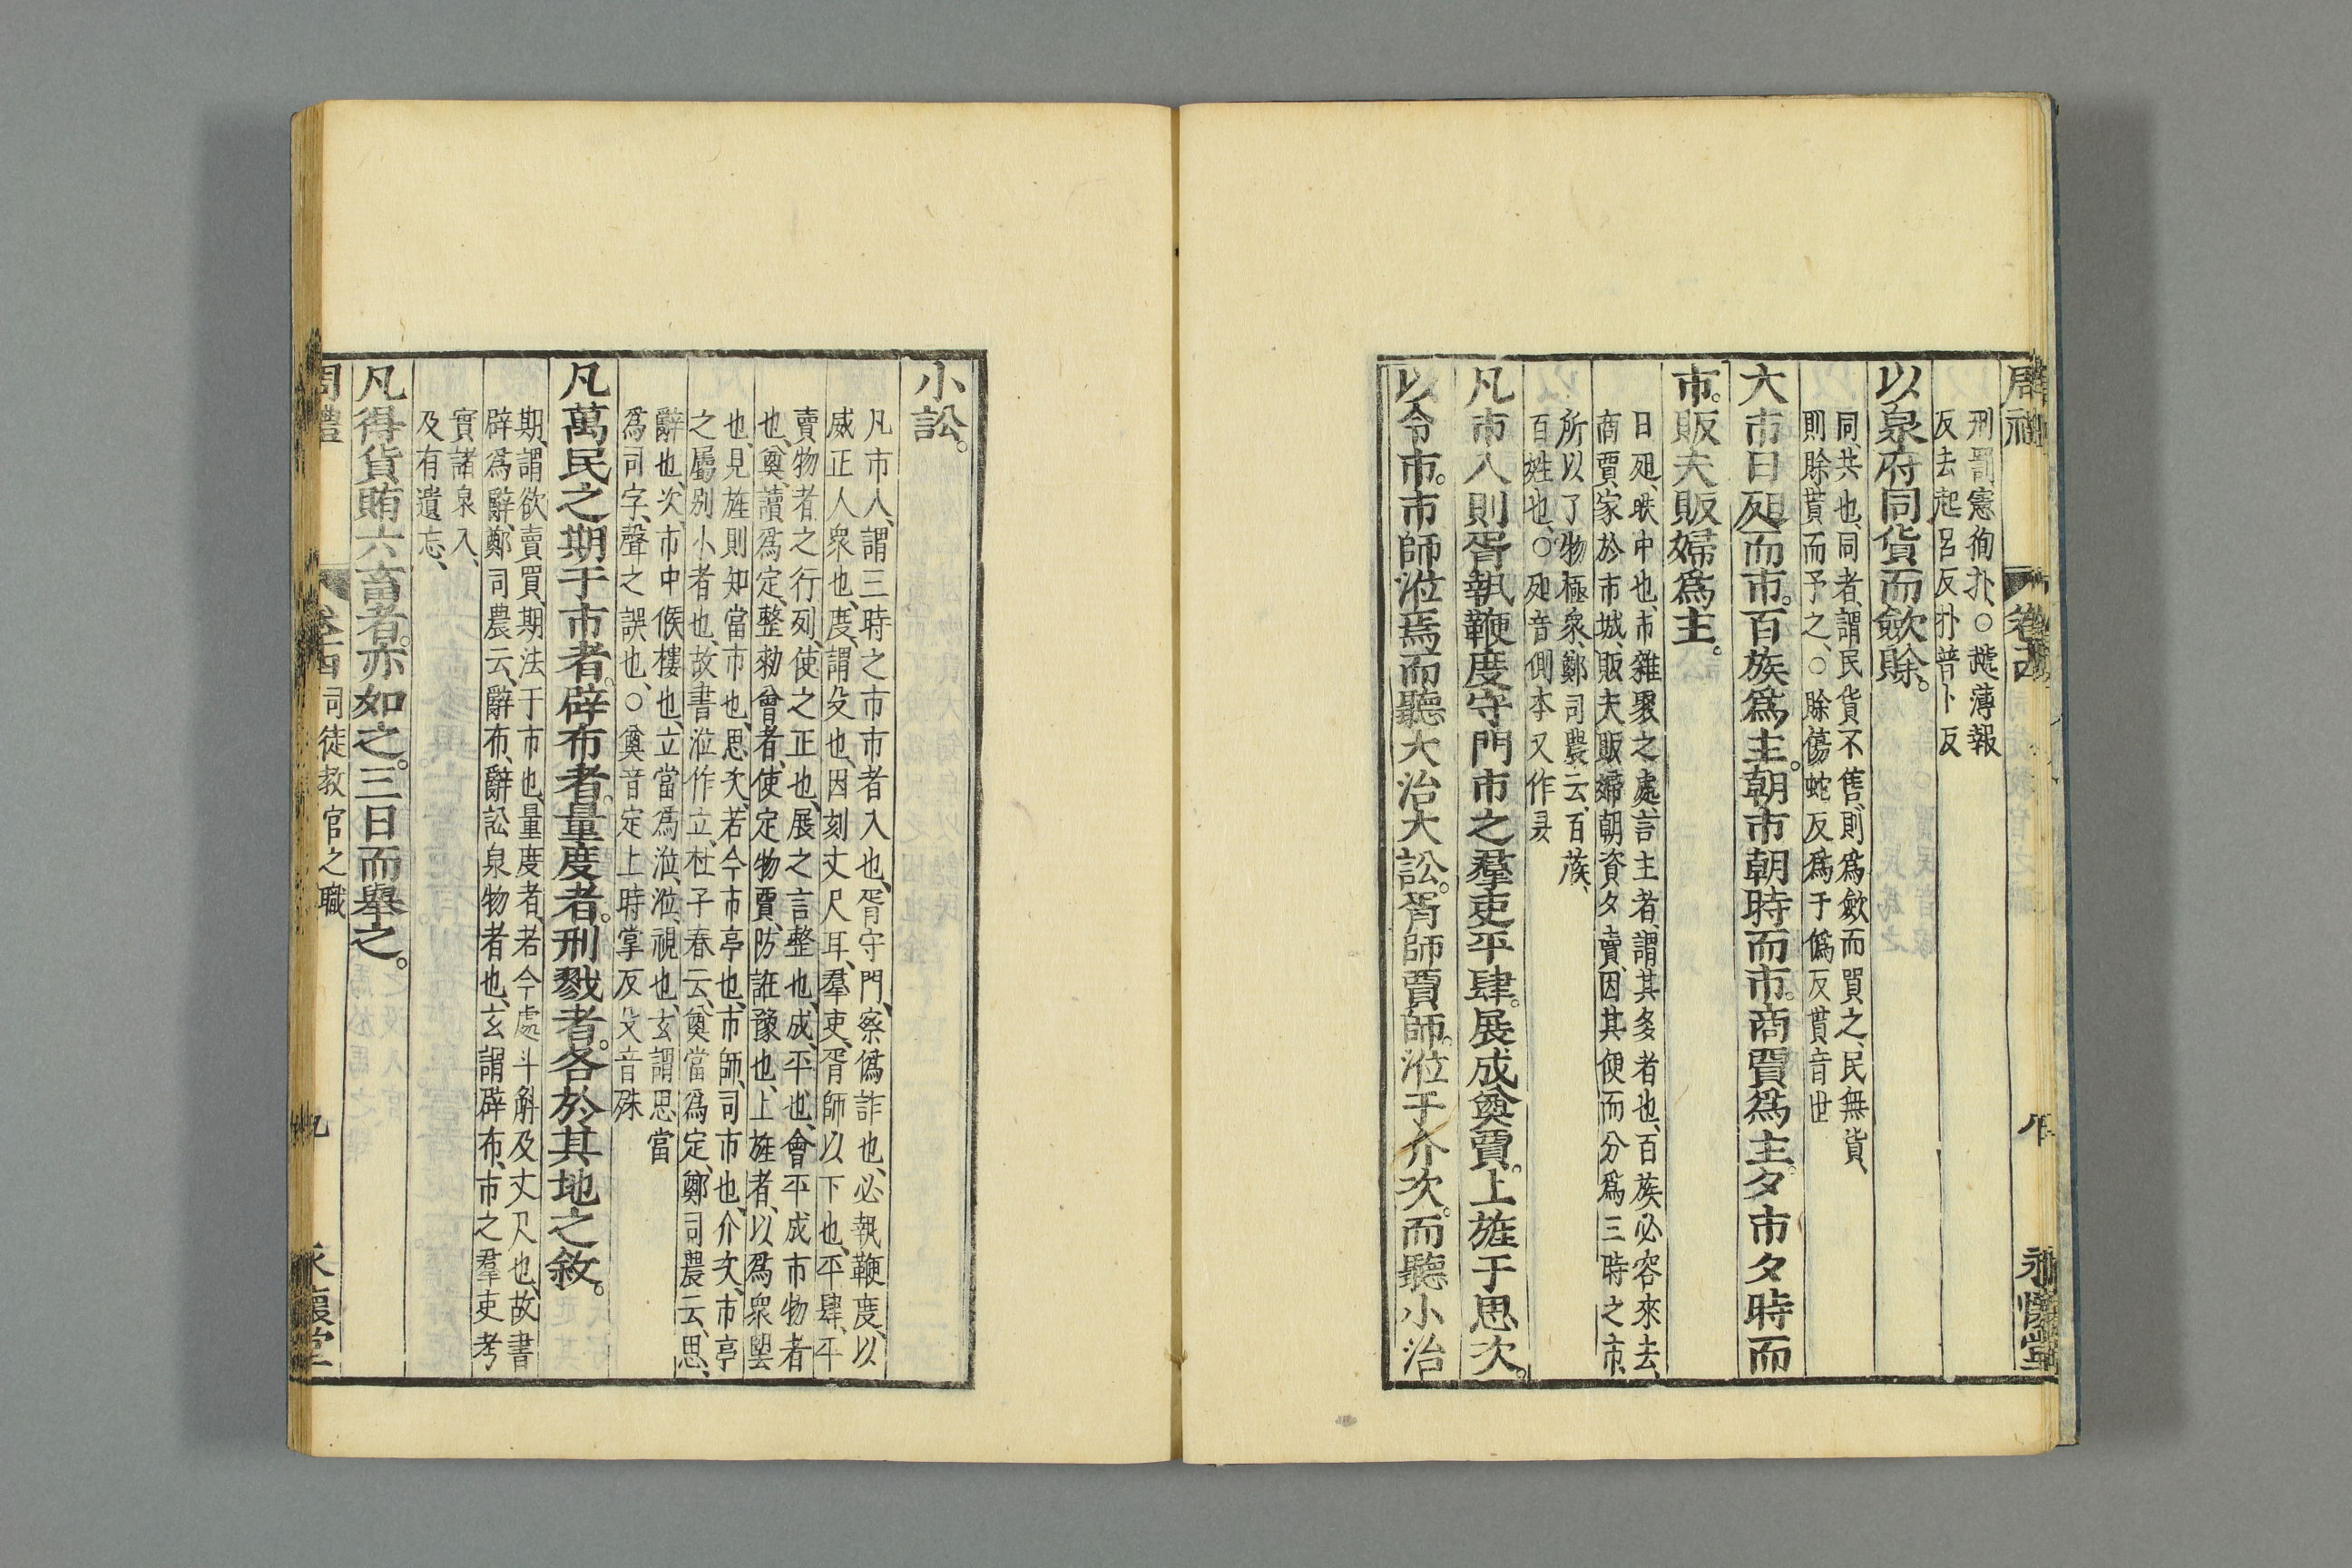 周禮 卷十四 八 永懷堂
刑罰憲徇扑、○㩧薄報
反去起呂反扑普卜反
以泉府同貨而斂賖。
同、共也、同者、謂民貨不售、則爲斂而買之、民無貨、
則賖貰而予之、○賖傷蛇反爲于僞反貰音世
大市日𣅳而市。百族爲主。朝市朝時而市。商賈爲主。夕市夕時而
市。販夫販婦爲主。
日𣅳、昳中也、市雜聚之處、言主者、謂其多者也、百族必容來去、
商賈、家於市城、販夫販婦朝資夕賣、因其便而分爲三時之市、
所以了物極衆、鄭司農云、百族、
百姓也、○𣅳音側本又作昃
凡市入則胥執鞭度守門市之羣吏平肆。展成奠賈。上旌于思次。
以令市。市師涖焉而聽大治大訟。胥師賈師。涖于介次。而聽小治
小訟。
凡市入、謂三時之市市者入也、胥守門、察僞詐也、必執鞭度、以
威正人衆也、度、謂殳也、因刻丈尺耳、羣吏、胥師以下也、平肆、平
賣物者之行列、使之正也、展之言整也、成、平也、會平成市物者
也、奠、讀爲定、整勑會者、使定物賈、防誑豫也、上旌者、以爲衆望
也、見旌則知當市也、思次、若今市亭也、市師、司市也、介次、市亭
之屬别小者也、故書涖作立、杜子春云、奠當爲定、鄭司農云、思、
辭也、次、市中候樓也、立當爲涖、涖、視也、玄謂思當
爲司字、聲之誤也、○奠音定上時掌反殳音殊
凡萬民之期于市者。辟布者。量度者。刑戮者。各於其地之敘。
期、謂欲賣買、期法于市也、量度者、若今處斗斛及丈尺也、故書
辟爲辭、鄭司農云、辭布、辭訟泉物者也、玄謂辟布、市之羣吏考
實諸泉入、
及有遺忘、
凡得貨賄六畜者。亦如之。三日而舉之。
周禮 卷十四 司徒教官之職 九 永懷堂